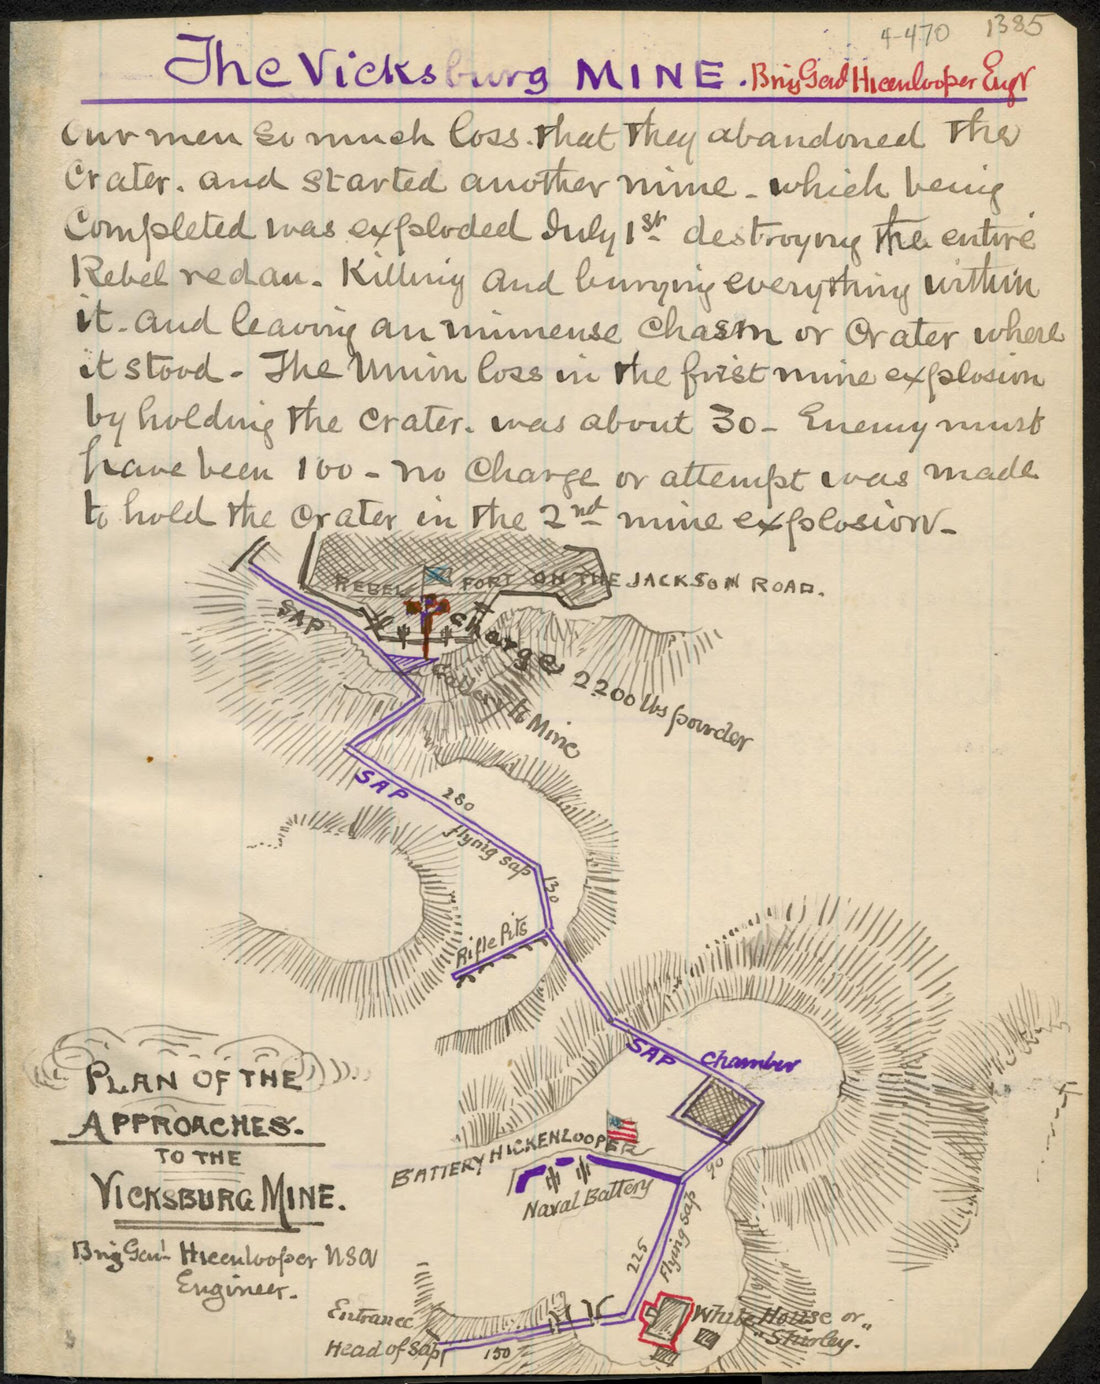 4-470 1385
The Vicksburg MINE. Brig Genl Hicenlooper Engr
Our men so much loss. that they abandoned the
Crater. and started another mine - which being
Completed was exploded July 1st destroying the entire
Rebel redan. Killing and burying everything within
it. and leaving an immense Chasm or Crater where
it stood - The Union loss in the frist mine explosion
by holding the crater. was about 30 - Enemy must
have been 100 - no Charge or attempt was made
to hold the Crater in the 2nd mine explosion -
REBEL FORT ON THE JACKSON ROAD.
SAP
Charge 2200 lbs powder
Gallery to Mine
SAP
280
flying sap
130
Rifle Pits
SAP
Chamber
PLAN OF THE
APPROACHES.
TO THE
VICKSBURG MINE.
Brig Genl Hicenlooper USV
Engineer.
BATTERY HICKENLOOPER
Naval Battery
90
Flying sap
225
Entrance
Head of Sap
150
White House or
"Shirley."